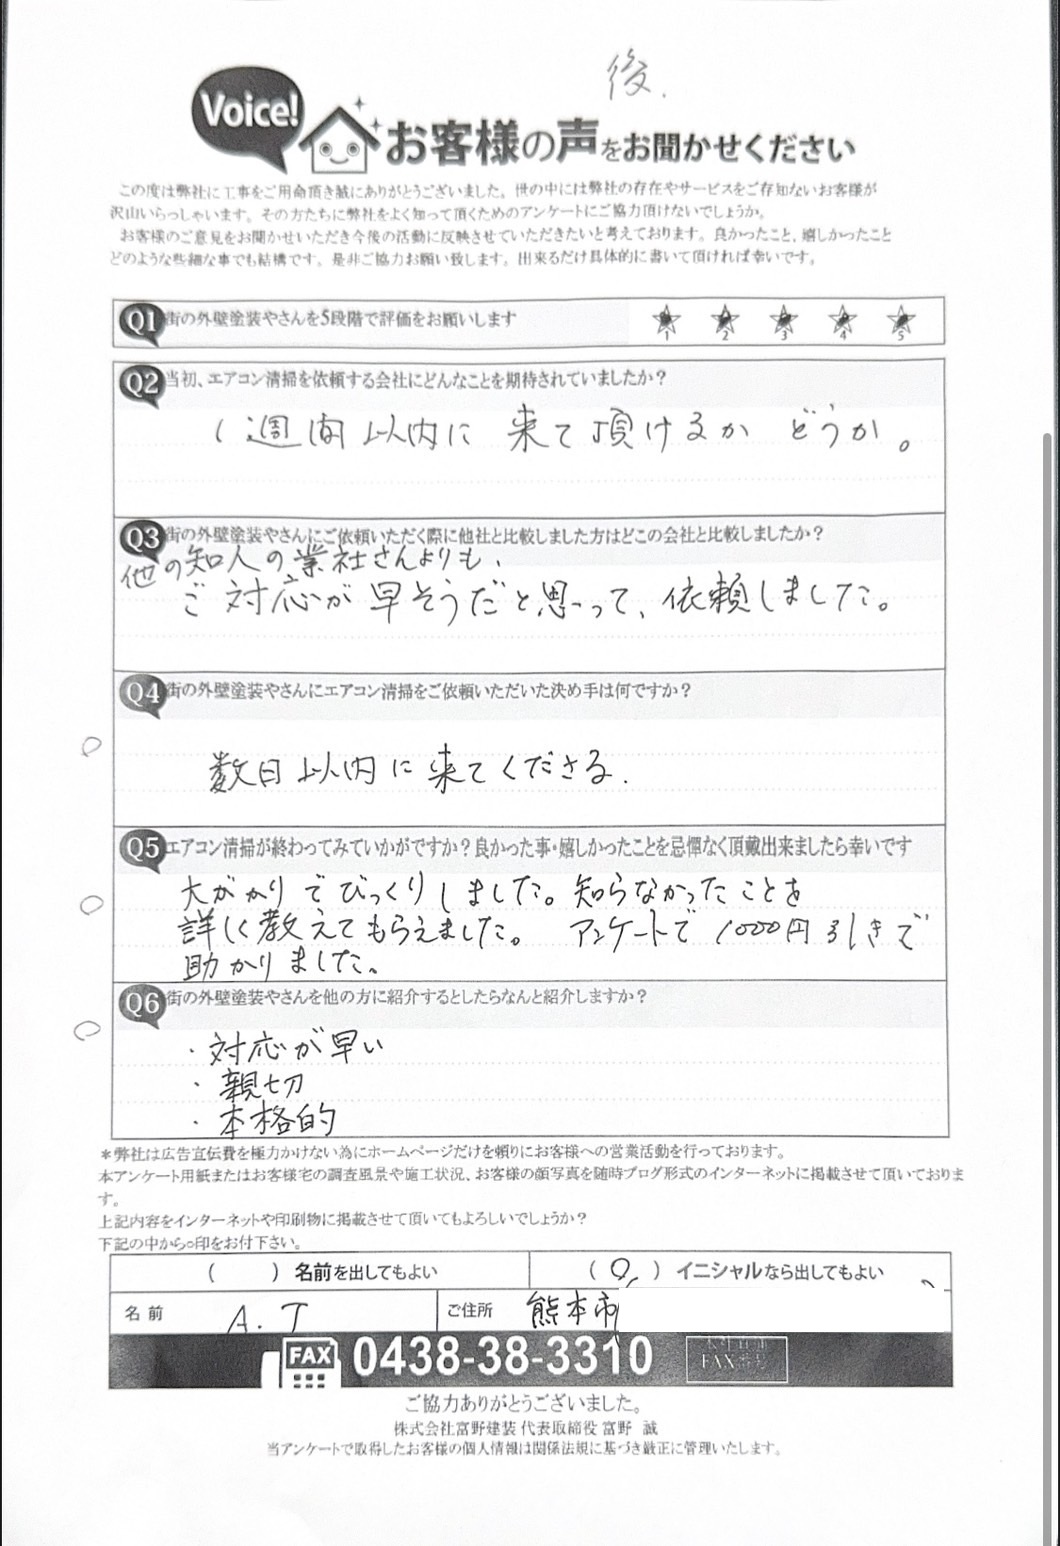 後.
Voice!
お客様の声をお聞かせください
この度は弊社に工事をご用命頂き誠にありがとうございました。世の中には弊社の存在やサービスをご存知ないお客様が
沢山いらっしゃいます。その方たちに弊社をよく知って頂くためのアンケートにご協力頂けないでしょうか。
お客様のご意見をお聞かせいただき今後の活動に反映させていただきたいと考えております。良かったこと、嬉しかったこと
どのような些細な事でも結構です。是非ご協力お願い致します。出来るだけ具体的に書いて頂ければ幸いです。
Q1 街の外壁塗装やさんを5段階で評価をお願いします
1 2 3 4 5
Q2 当初、エアコン清掃を依頼する会社にどんなことを期待されていましたか?
1週間以内に 来て頂けるか どうか。
Q3 街の外壁塗装やさんにご依頼いただく際に他社と比較しました方はどこの会社と比較しましたか?
他の知人の業社さんよりも、
ご対応が早そうだと思って、依頼しました。
Q4 街の外壁塗装やさんにエアコン清掃をご依頼いただいた決め手は何ですか?
数日以内に来てくださる.
Q5 エアコン清掃が終わってみていかがですか?良かった事・嬉しかったことを忌憚なく頂戴出来ましたら幸いです
大がかりでびっくりしました。知らなかったことを
詳しく教えてもらえました。 アンケートで1000円引きで
助かりました。
Q6 街の外壁塗装やさんを他の方に紹介するとしたらなんと紹介しますか?
・対応が早い
・親切
・本格的
*弊社は広告宣伝費を極力かけない為にホームページだけを頼りにお客様への営業活動を行っております。
本アンケート用紙またはお客様宅の調査風景や施工状況、お客様の顔写真を随時ブログ形式のインターネットに掲載させて頂いておりま
す。
上記内容をインターネットや印刷物に掲載させて頂いてもよろしいでしょうか?
下記の中から○印をお付下さい。
( ) 名前を出してもよい (○) イニシャルなら出してもよい
名前 A.T ご住所 熊本市
FAX 0438-38-3310 FAX番号
ご協力ありがとうございました。
株式会社富野建装 代表取締役 富野 誠
当アンケートで取得したお客様の個人情報は関係法規に基づき厳正に管理いたします。